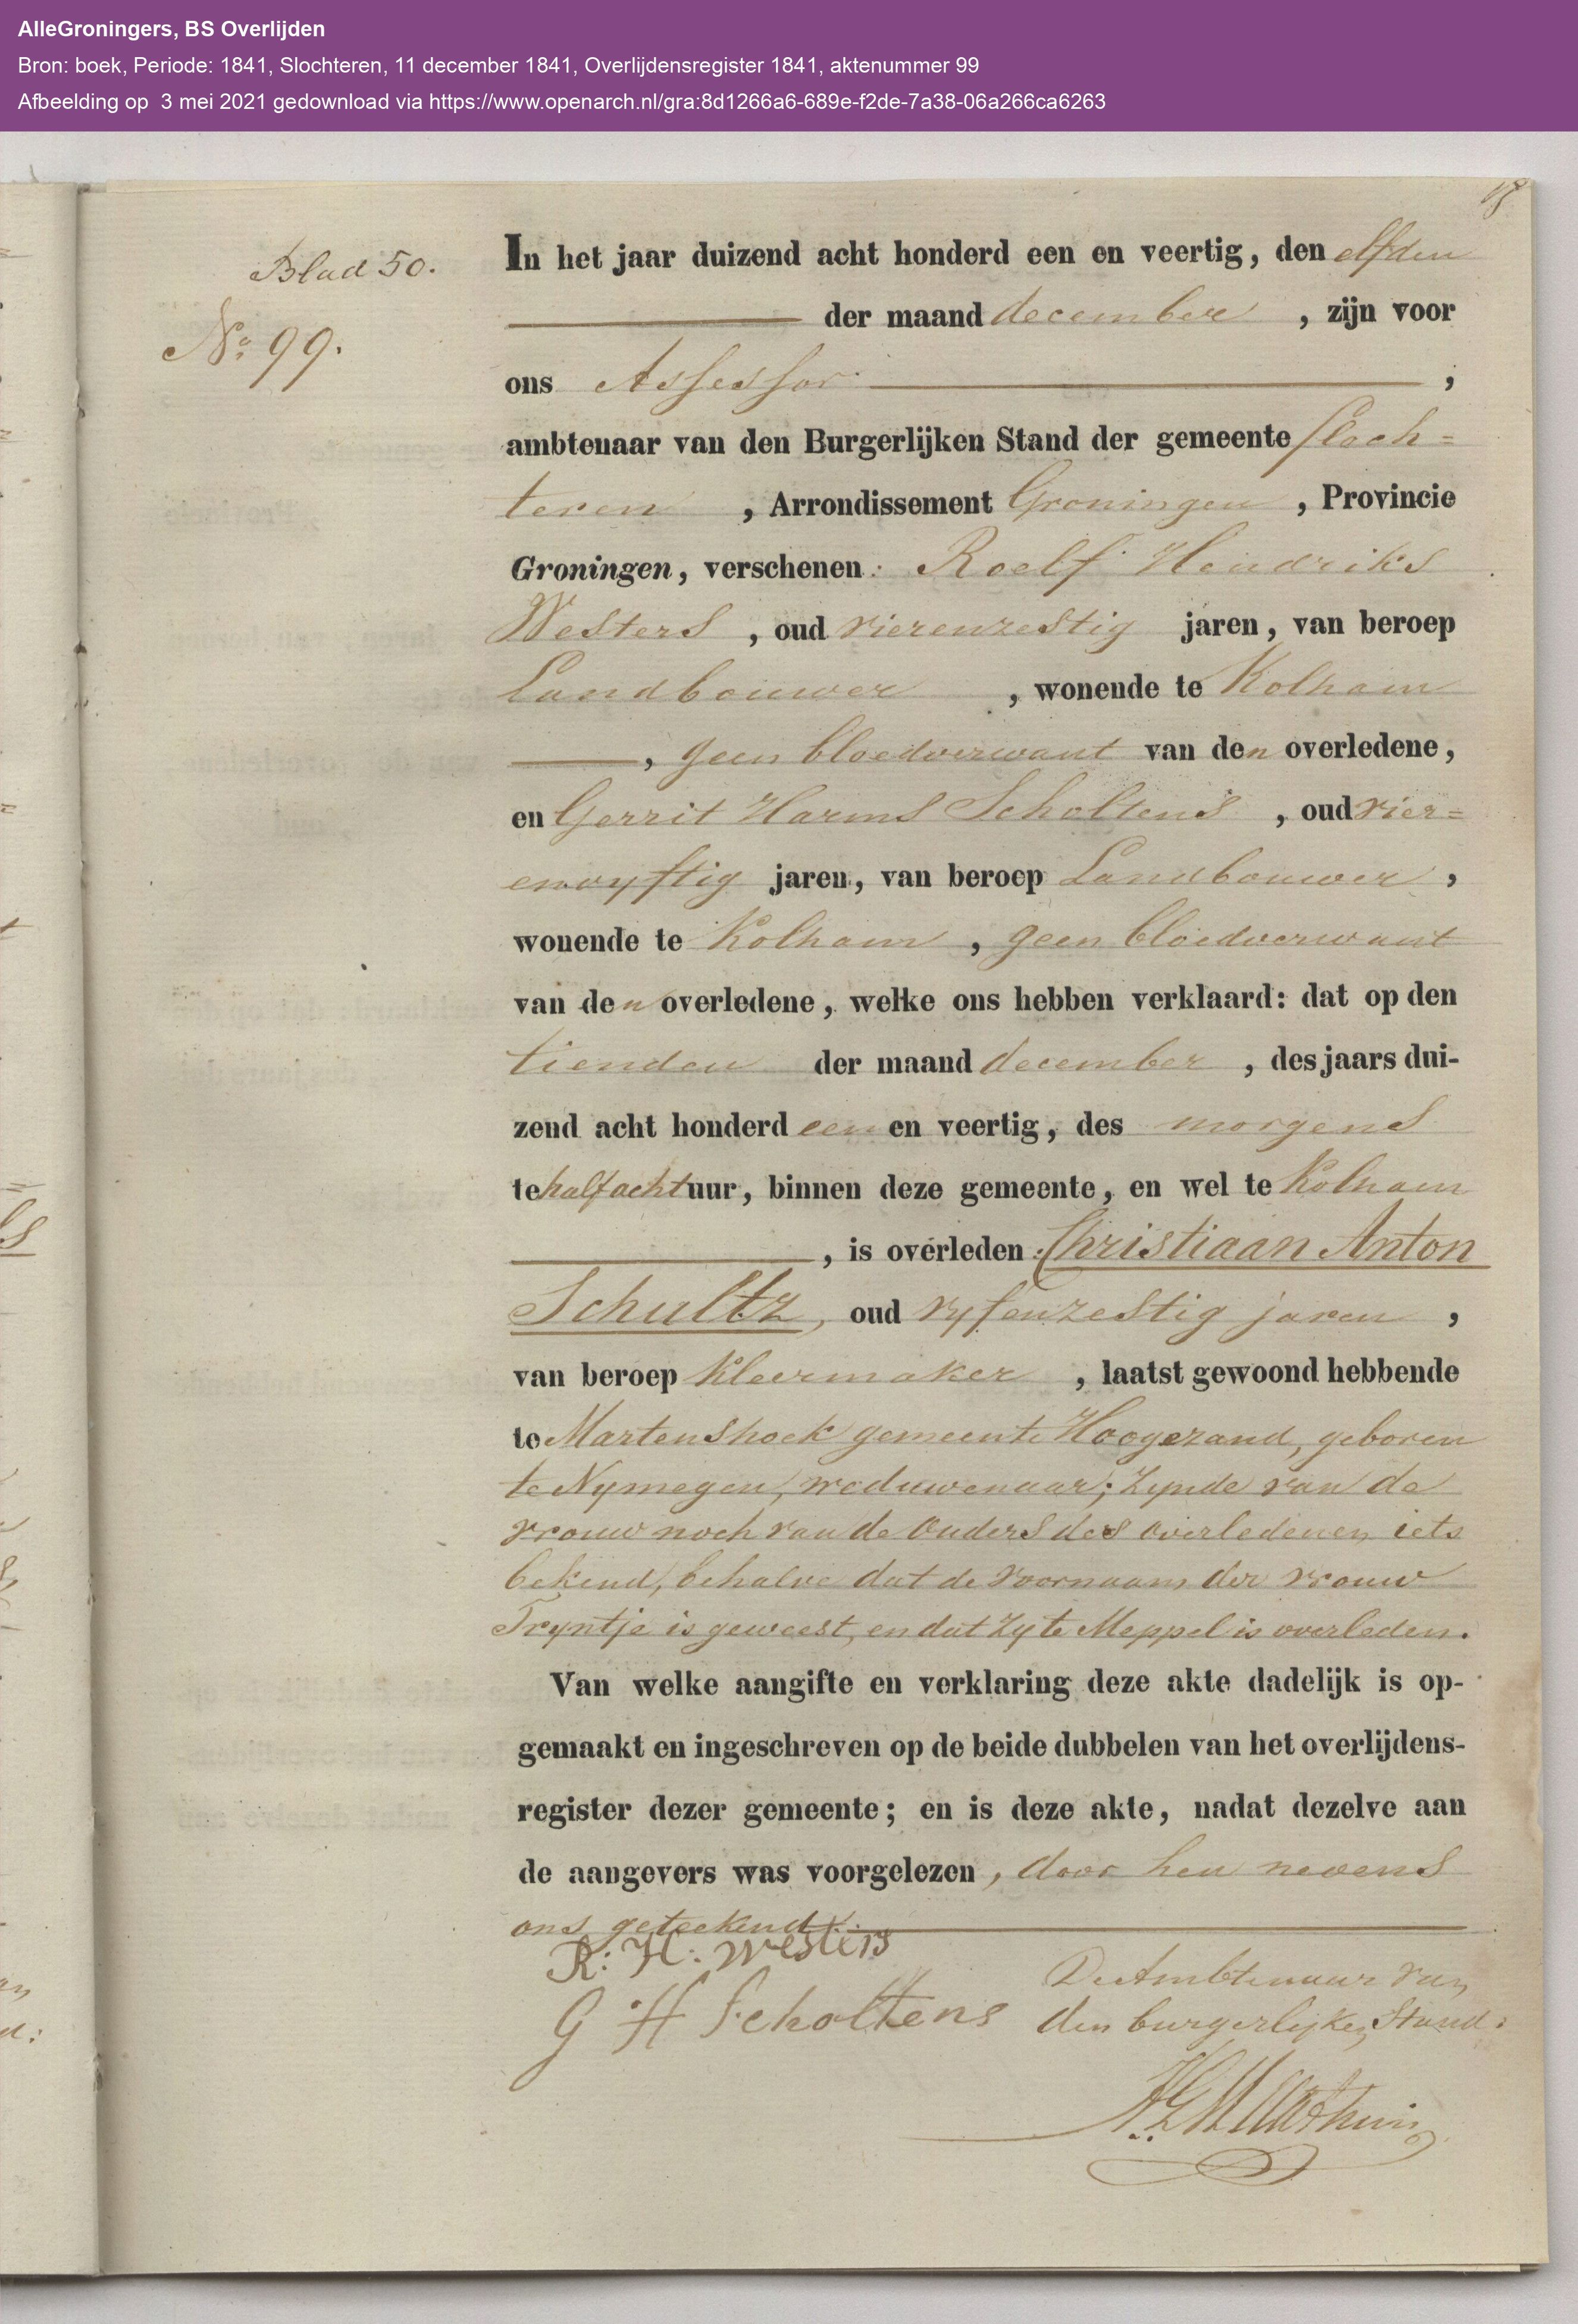 AlleGroningers, BS Overlijden
Bron: boek, Periode: 1841, Slochteren, 11 december 1841, Overlijdensregister 1841, aktenummer 99
Afbeelding op 3 mei 2021 gedownload via https://www.openarch.nl/gra:8d1266a6-689e-f2de-7a38-06a266ca6263
Blad 50.
No. 99.
In het jaar duizend acht honderd een en veertig, den elfden
der maand december, zijn voor
ons Assessor,
ambtenaar van den Burgerlijken Stand der gemeente Sloch=
teren, Arrondissement Groningen, Provincie
Groningen, verschenen: Roelf Hendriks
Westers, oud vierenzestig jaren, van beroep
Landbouwer, wonende te Kolham
, geen bloedverwant van den overledene,
en Gerrit Harms Scholtens, oud vier=
envyftig jaren, van beroep Landbouwer,
wonende te Kolham, geen bloedverwant
van den overledene, welke ons hebben verklaard: dat op den
tienden der maand december, des jaars dui-
zend acht honderd een en veertig, des morgens
te half acht uur, binnen deze gemeente, en wel te Kolham
, is overleden: Christiaan Anton
Schultz, oud vyfenzestig jaren,
van beroep kleermaker, laatst gewoond hebbende
te Martenshoek gemeente Hoogezand, geboren
te Nymegen, weduwenaar; zynde van de
vrouw noch van de ouders des overledenen iets
bekend, behalve dat de voornaam der vrouw
Tryntje is geweest, en dat zy te Meppel is overleden.
Van welke aangifte en verklaring deze akte dadelijk is op-
gemaakt en ingeschreven op de beide dubbelen van het overlijdens-
register dezer gemeente; en is deze akte, nadat dezelve aan
de aangevers was voorgelezen, door hen nevens
ons geteekend.
R: H: Westers
G H Scholtens
De Ambtenaar van
den burgerlyken Stand: